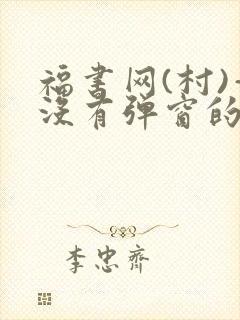 福书网(村)-
没有弹窗的
李忠齐